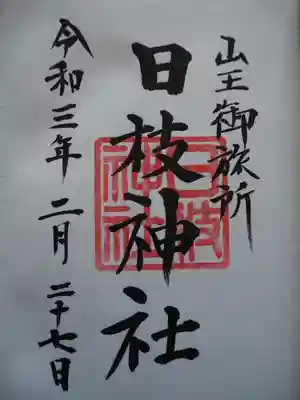 山王御旅所
日枝神社
令和三年 二月 二十七日
日枝神社